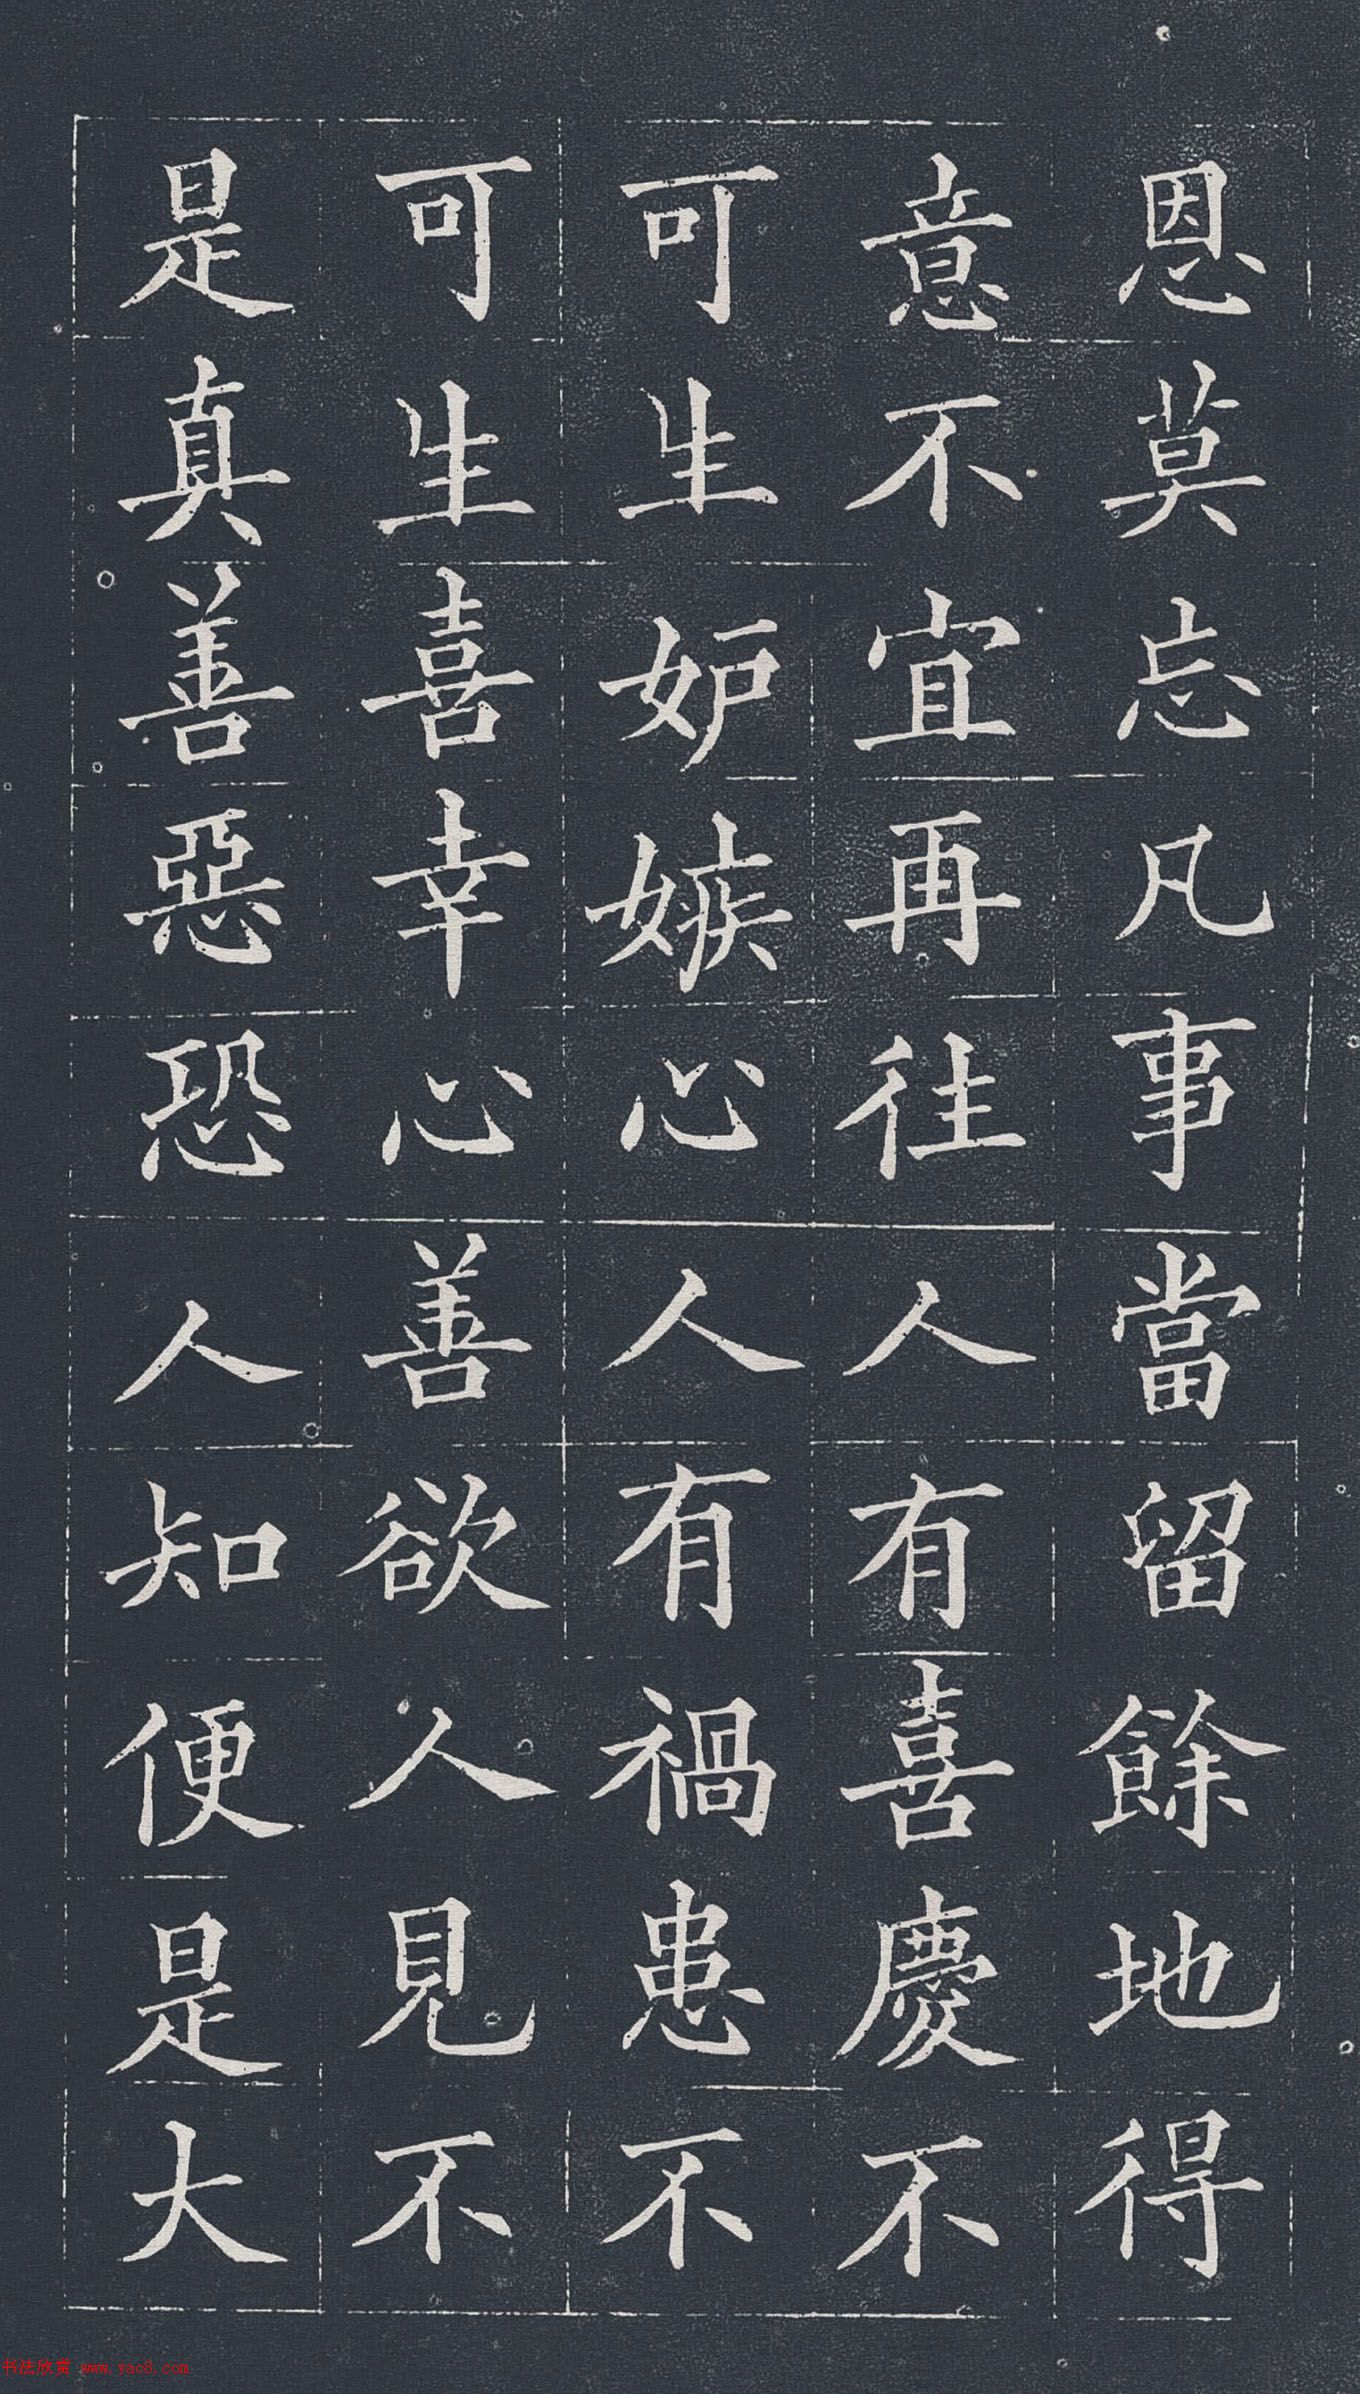 恩莫忘凡事當留餘地得
意不宜再往人有喜慶不
可生妒嫉心人有禍患不
可生喜幸心善欲人見不
是真善惡恐人知便是大
书法欣赏 www.yac8.com